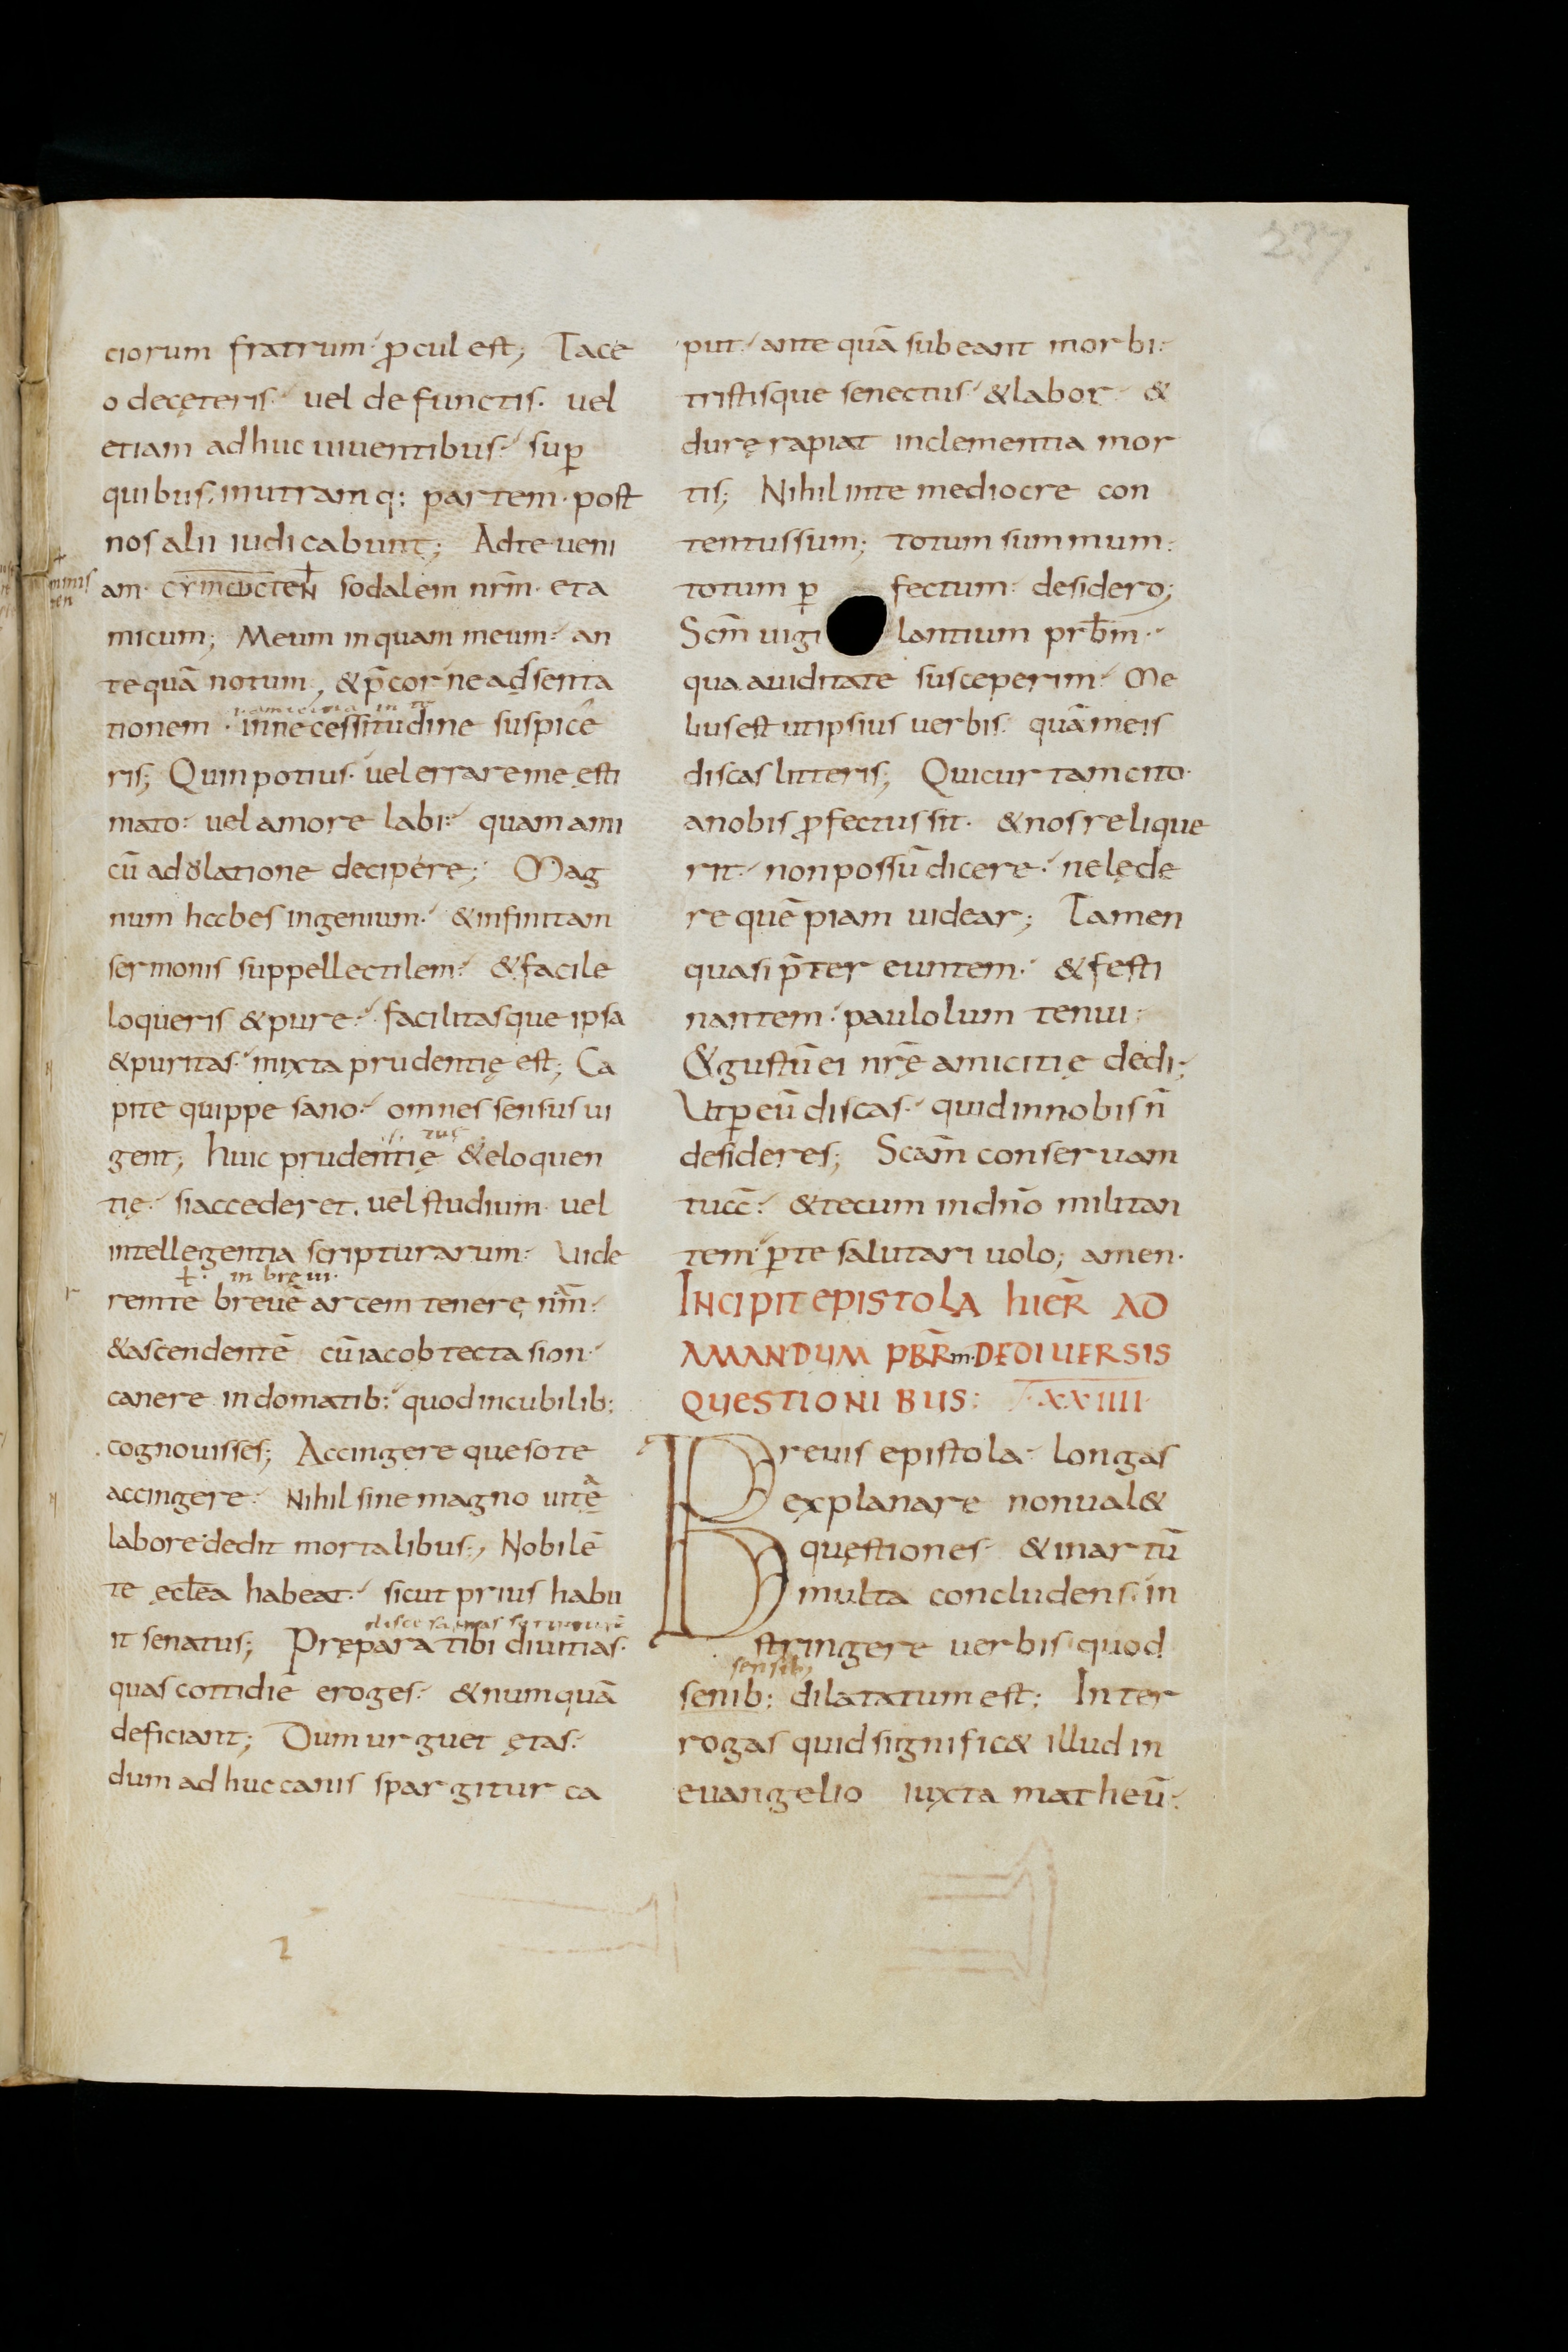 237
ciorum fratrum· ꝓcul est; Tace
o decęteris· uel defunctis· uel
etiam adhuc uiuentibus· suꝑ
quibus inutramq: partem· post
nos alii iudicabunt; Adte ueni
am· sodalem nr̄m· et a
micum; Meum inquam meum· an
te quā notum, & p̄cor ne adsenta
tionem · inne cessitudine suspice
ris; Quin potius· uel errare me ęsti
mato· uel amore labi· quam ami
cū adolatione decipere; Mag
num habes ingenium· & infinitam
sermonis suppellectilem· & facile
loqueris & pure· facilitasque ipsa
& puritas· mixta prudentię est; Ca
pite quippe sano· omnes sensus ui
gent; Huic prudentię & eloquen
tię· si accederet· uel studium· uel
intellegentia scripturarum· Uide
in breui·
rem te breuē arcem tenere nr̄m·
& ascendentē cū iacob tecta sion·
canere in domatib: quod incubilib:
cognouisses; Accingere queso te
accingere· Nihil sine magno uitę
labore dedit mortalibus; Nobilē
te ęcl̄ea habeat· sicut prius habu
it senatus; Prępara tibi diuitias·
quas cottidie eroges· & numquā
deficiant; Dum urguet ętas·
dum adhuc canis spargitur ca
put· ante quā subeant morbi·
tristisque senectus· & labor· &
durę rapiat inclementia mor
tis; Nihil inte mediocre con
tentus sum; totum summum·
totum ꝑ fectum· desidero;
Scm̄ uigi lantium prb̄m·
qua auiditate susceperim· Me
lius est ut ipsius uerbis· quā meis
discas litteris; Qui cur tam cito·
a nobis ꝓfectus sit· & nos relique
rit· non possū dicere· ne lęde
re quēpiam uidear; Tamen
quasi p̄ter euntem· & festi
nantem· paulolum tenui·
& gustū ei nr̄ę amicitię dedi;
Ut ꝑ eū discas· quid in nobis n̄
desideres; Scam̄ conseruam
tuā· & tecum in dn̄o militan
tem· ꝑ te salutari uolo; amen·
INCIPIT EPISTOLA HIER̄ AD
AMANDUM PBR̄m· DE DIUERSIS
QUESTIONIBUS: XXIIII·
Breuis epistola· longas
explanare non ual&
quęstiones· & in artū
multa concludens· in
stringere uerbis quod
sensib;
senib: dilatatum est; Inter
rogas quid signific& illud in
euangelio iuxta matheū·